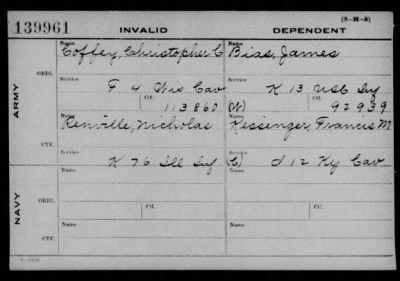 (3-M-5)
139961 INVALID DEPENDENT
Name Coffey, Christopher C Name Bias, James
ORIG.
Service F 4 Wis Cav Service K 13 USC Inf
Ctf. 113860 (W) Ctf. 92939
ARMY
Name Renville, Nicholas Name Kessenger, Francis M
CTF.
Service K 76 Ill Inf Service (C) I 12 Ky Cav
Name Name
ORIG.
Ctf. Ctf.
NAVY
Name Name
CTF.